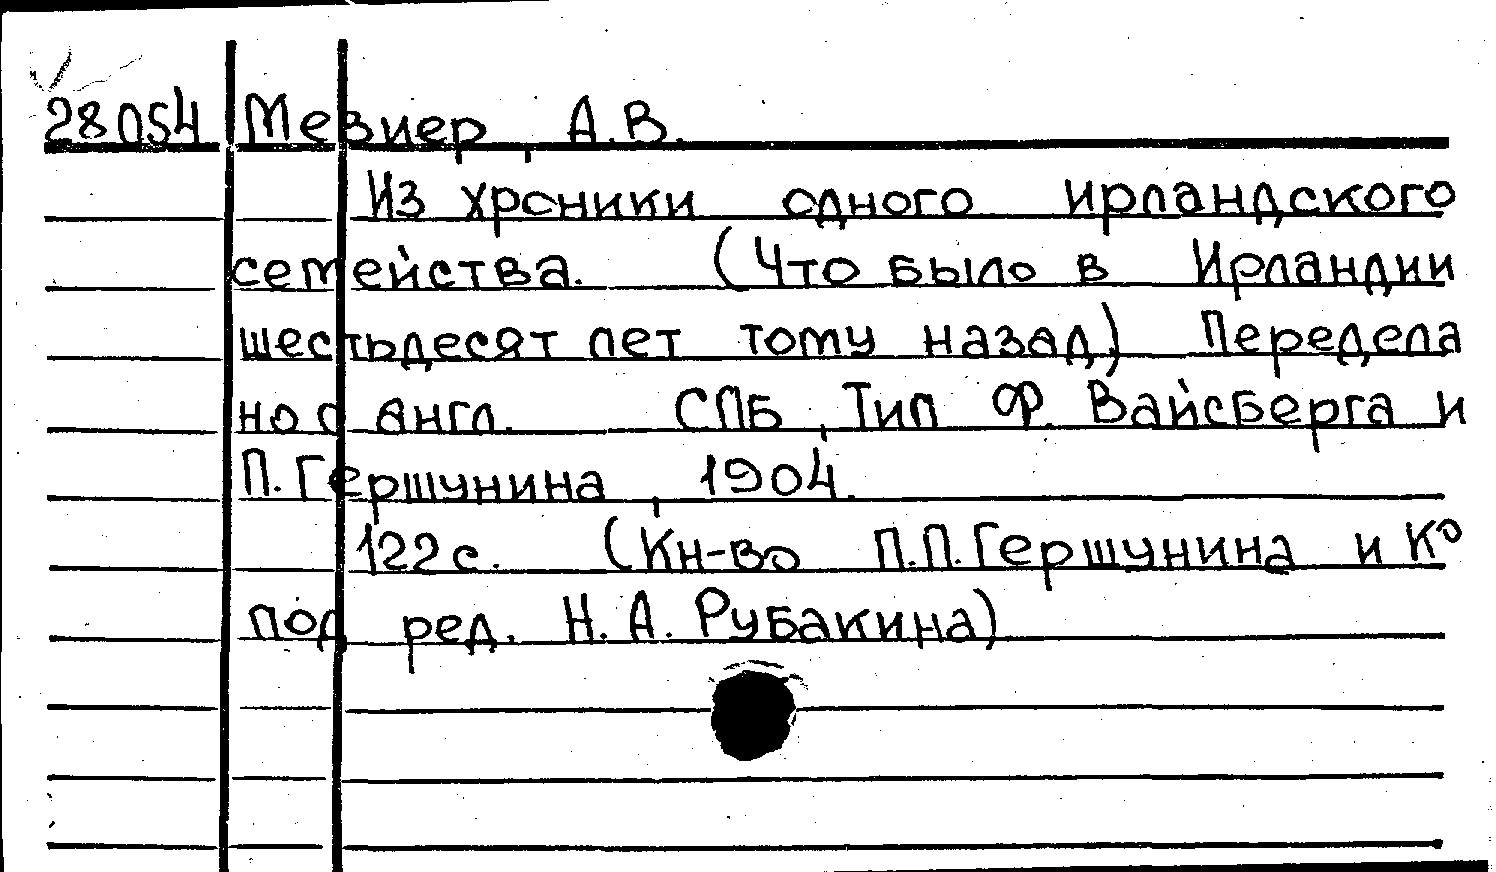 28054 Мезиер, А.В.
Из хроники одного ирландского
семейства. (Что было в Ирландии
шестьдесят лет тому назад) Передела
но с англ. СПБ, Тип Ф. Вайсберга и
П. Гершунина, 1904.
122с. (Кн-во П.П. Гершунина и Ко
под ред. Н.А. Рубакина)